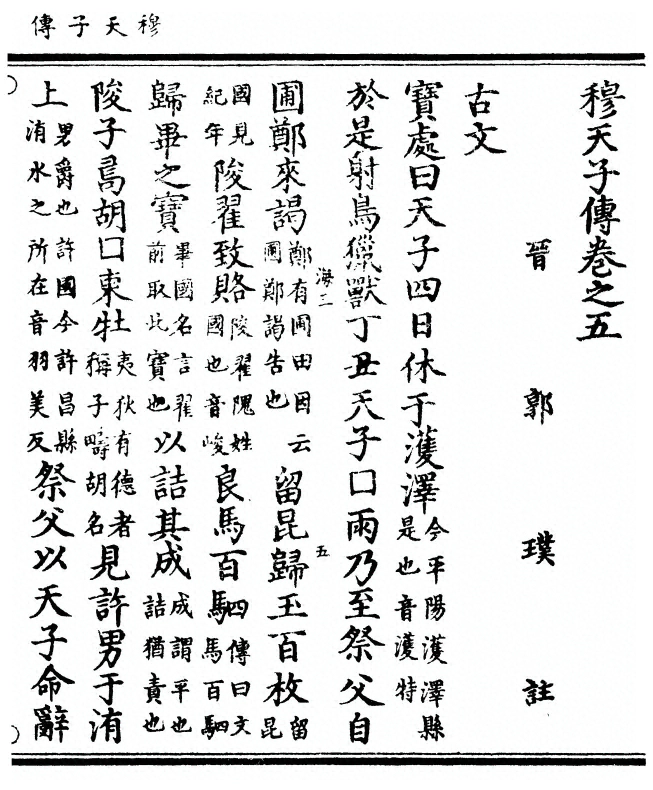 穆天子傳
穆天子傳卷之五
晉 郭 璞 註
古文
寶處曰天子四日休于濩澤今平陽濩澤縣是也音濩特
於是射鳥獵獸丁丑天子囗雨乃至祭父自
圃鄭來謁鄭有圃田因云圃鄭謁告也留昆歸玉百枚留昆
國見紀年陖翟致賂陖翟隗姓國也音峻良馬百駟傳曰文馬百駟
歸畢之寶畢國名言翟前取此寶也以詰其成成謂平也詰猶責也
陖子㝊胡囗東牡夷狄有德者稱子㝊胡名見許男于洧
上男爵也許國今許昌縣洧水之所在音羽美反祭父以天子命辭
海三
五